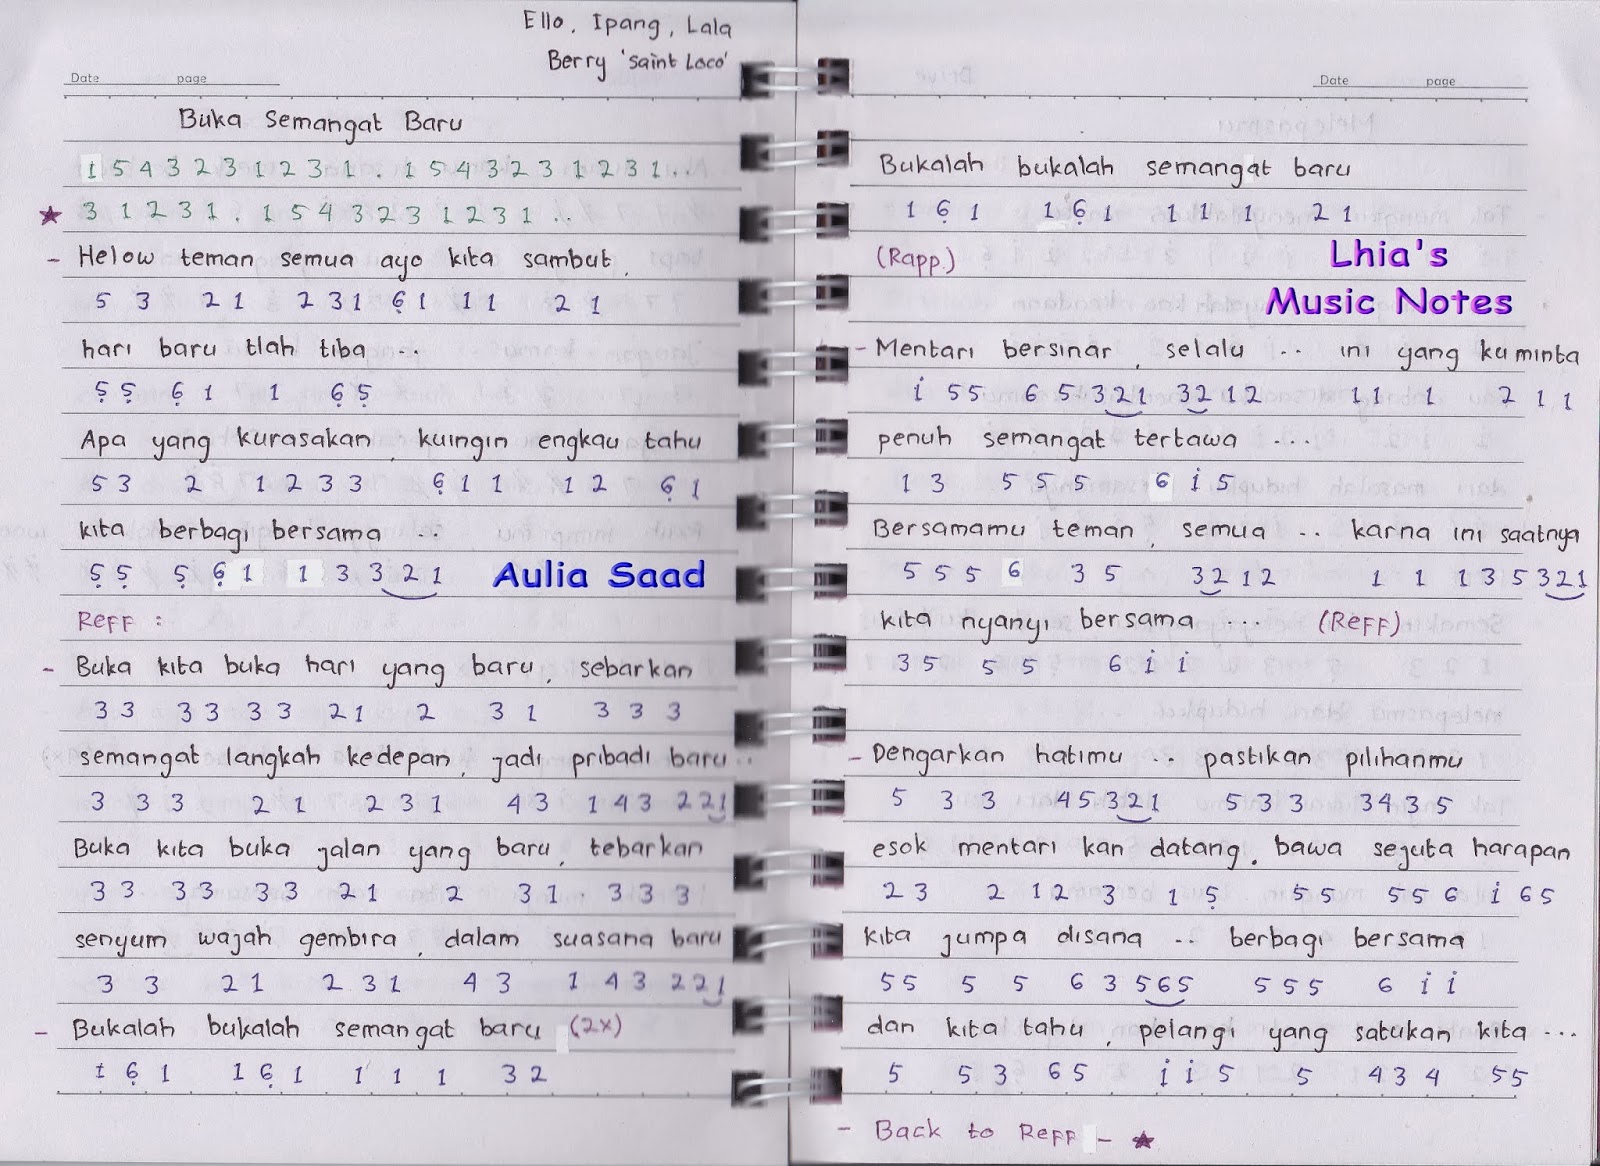 Ello, Ipang, Lala
Berry 'Saint Loco'
Date page
Buka Semangat Baru
1 5 4 3 2 3 1 2 3 1 . 1 5 4 3 2 3 1 2 3 1 ...
★ 3 1 2 3 1 . 1 5 4 3 2 3 1 2 3 1 ..
- Helow teman semua ayo kita sambut,
5 3 2 1 2 3 1 6̣ 1 1 1 2 1
hari baru tlah tiba ...
5̣ 5̣ 6̣ 1 1 6̣ 5̣
Apa yang kurasakan, kuingin engkau tahu
5 3 2 1 2 3 3 6̣ 1 1 1 2 6̣ 1
kita berbagi bersama ..
5̣ 5̣ 5̣ 6̣ 1 1 3 3 2 1
Aulia Saad
Reff :
- Buka kita buka hari yang baru, sebarkan
3 3 3 3 3 3 2 1 2 3 1 3 3 3
semangat langkah kedepan, jadi pribadi baru..
3 3 3 2 1 2 3 1 4 3 1 4 3 2 2 1
Buka kita buka jalan yang baru, tebarkan
3 3 3 3 3 3 2 1 2 3 1 3 3 3
senyum wajah gembira, dalam suasana baru
3 3 2 1 2 3 1 4 3 1 4 3 2 2 1
- Bukalah bukalah semangat baru (2x)
1 6̣ 1 1 6̣ 1 1 1 1 3 2
Date page
Bukalah bukalah semangat baru
1 6̣ 1 1 6̣ 1 1 1 1 2 1
(Rapp.)
Lhia's
Music Notes
- Mentari bersinar, selalu .. ini yang kuminta
i 5 5 6 5 3 2 1 3 2 1 2 1 1 1 2 1 1
penuh semangat tertawa ...
1 3 5 5 5 6 i 5
Bersamamu teman, semua .. karna ini saatnya
5 5 5 6 3 5 3 2 1 2 1 1 1 3 5 3 2 1
kita nyanyi bersama ... (Reff)
3 5 5 5 6 i i
- Dengarkan hatimu .. pastikan pilihanmu
5 3 3 4 5 3 2 1 5 3 3 3 4 3 5
esok mentari kan datang, bawa sejuta harapan
2 3 2 1 2 3 1 5̣ 5 5 5 5 6 i 6 5
kita jumpa disana .. berbagi bersama
5 5 5 5 6 3 5 6 5 5 5 5 6 i i
dan kita tahu, pelangi yang satukan kita ...
5 5 3 6 5 i i 5 5 4 3 4 5 5
- Back to Reff - ★